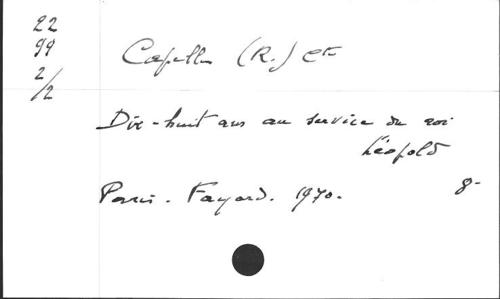 22
99
2/2
Capelle (R.) Cte
Dix-huit ans au service du roi
Léopold
Paris. Fayard. 1970.
8-